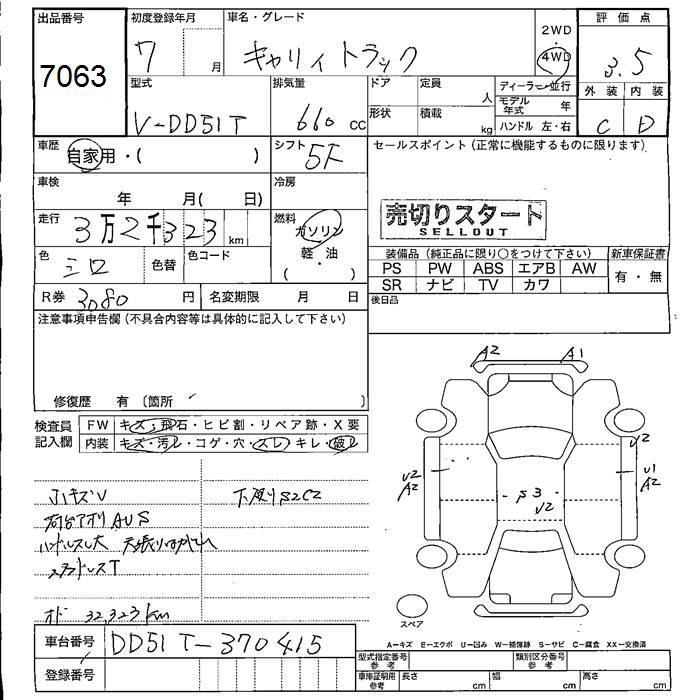 出品番号 初度登録年月 車名・グレード 2WD 評価点
7063 7 月 キャリィトラック ・ 4WD 3.5
型式 排気量 ドア 定員 人 ディーラー・並行 外装 内装
V-DD51T 660 cc 形状 積載 kg モデル年式 年 C D
ハンドル 左・右
車歴 自家用・( ) シフト 5F セールスポイント(正常に機能するものに限ります)
車検 年 月( 日) 冷房
走行 3万2千323 km 燃料 ガソリン 軽・油 ( ・ )
売切りスタート
SELLOUT
色 シロ 色替 色コード
装備品(純正品に限り○をつけて下さい) 新車保証書
PS PW ABS エアB AW 有・無
SR ナビ TV カワ
R券 3080 円 名変期限 月 日 後日品
注意事項申告欄(不具合内容等は具体的に記入して下さい)
修復歴 有 〔箇所 〕
A2 A1
検査員記入欄 FW キズ・飛石・ヒビ割・リペア跡・X要
内装 キズ・汚レ・コゲ・穴・スレ・キレ・破レ
V2
V2 A2
V1 A2
S3 V2
小キズV 下廻りS2C2
荷台アオリAUS
ハンドルスレ大
スタッドレスT
オド 32,323km
スペア
A－キズ E－エクボ U－凹み W－補修跡 S－サビ C－腐食 XX－交換済
車台番号 DD51T-370415
型式指定番号 参考 類別区分番号 参考
登録番号 車庫証明用 参考 長さ cm 幅 cm 高さ cm